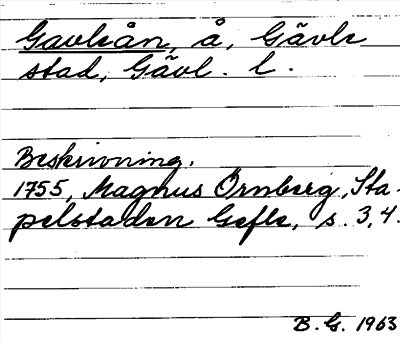 Gavleån, å, Gävle
stad, Gävl. l.
Beskrivning.
1755, Magnus Örnberg, Sta-
pelstaden Gefle, s. 3, 4.
B. G. 1963